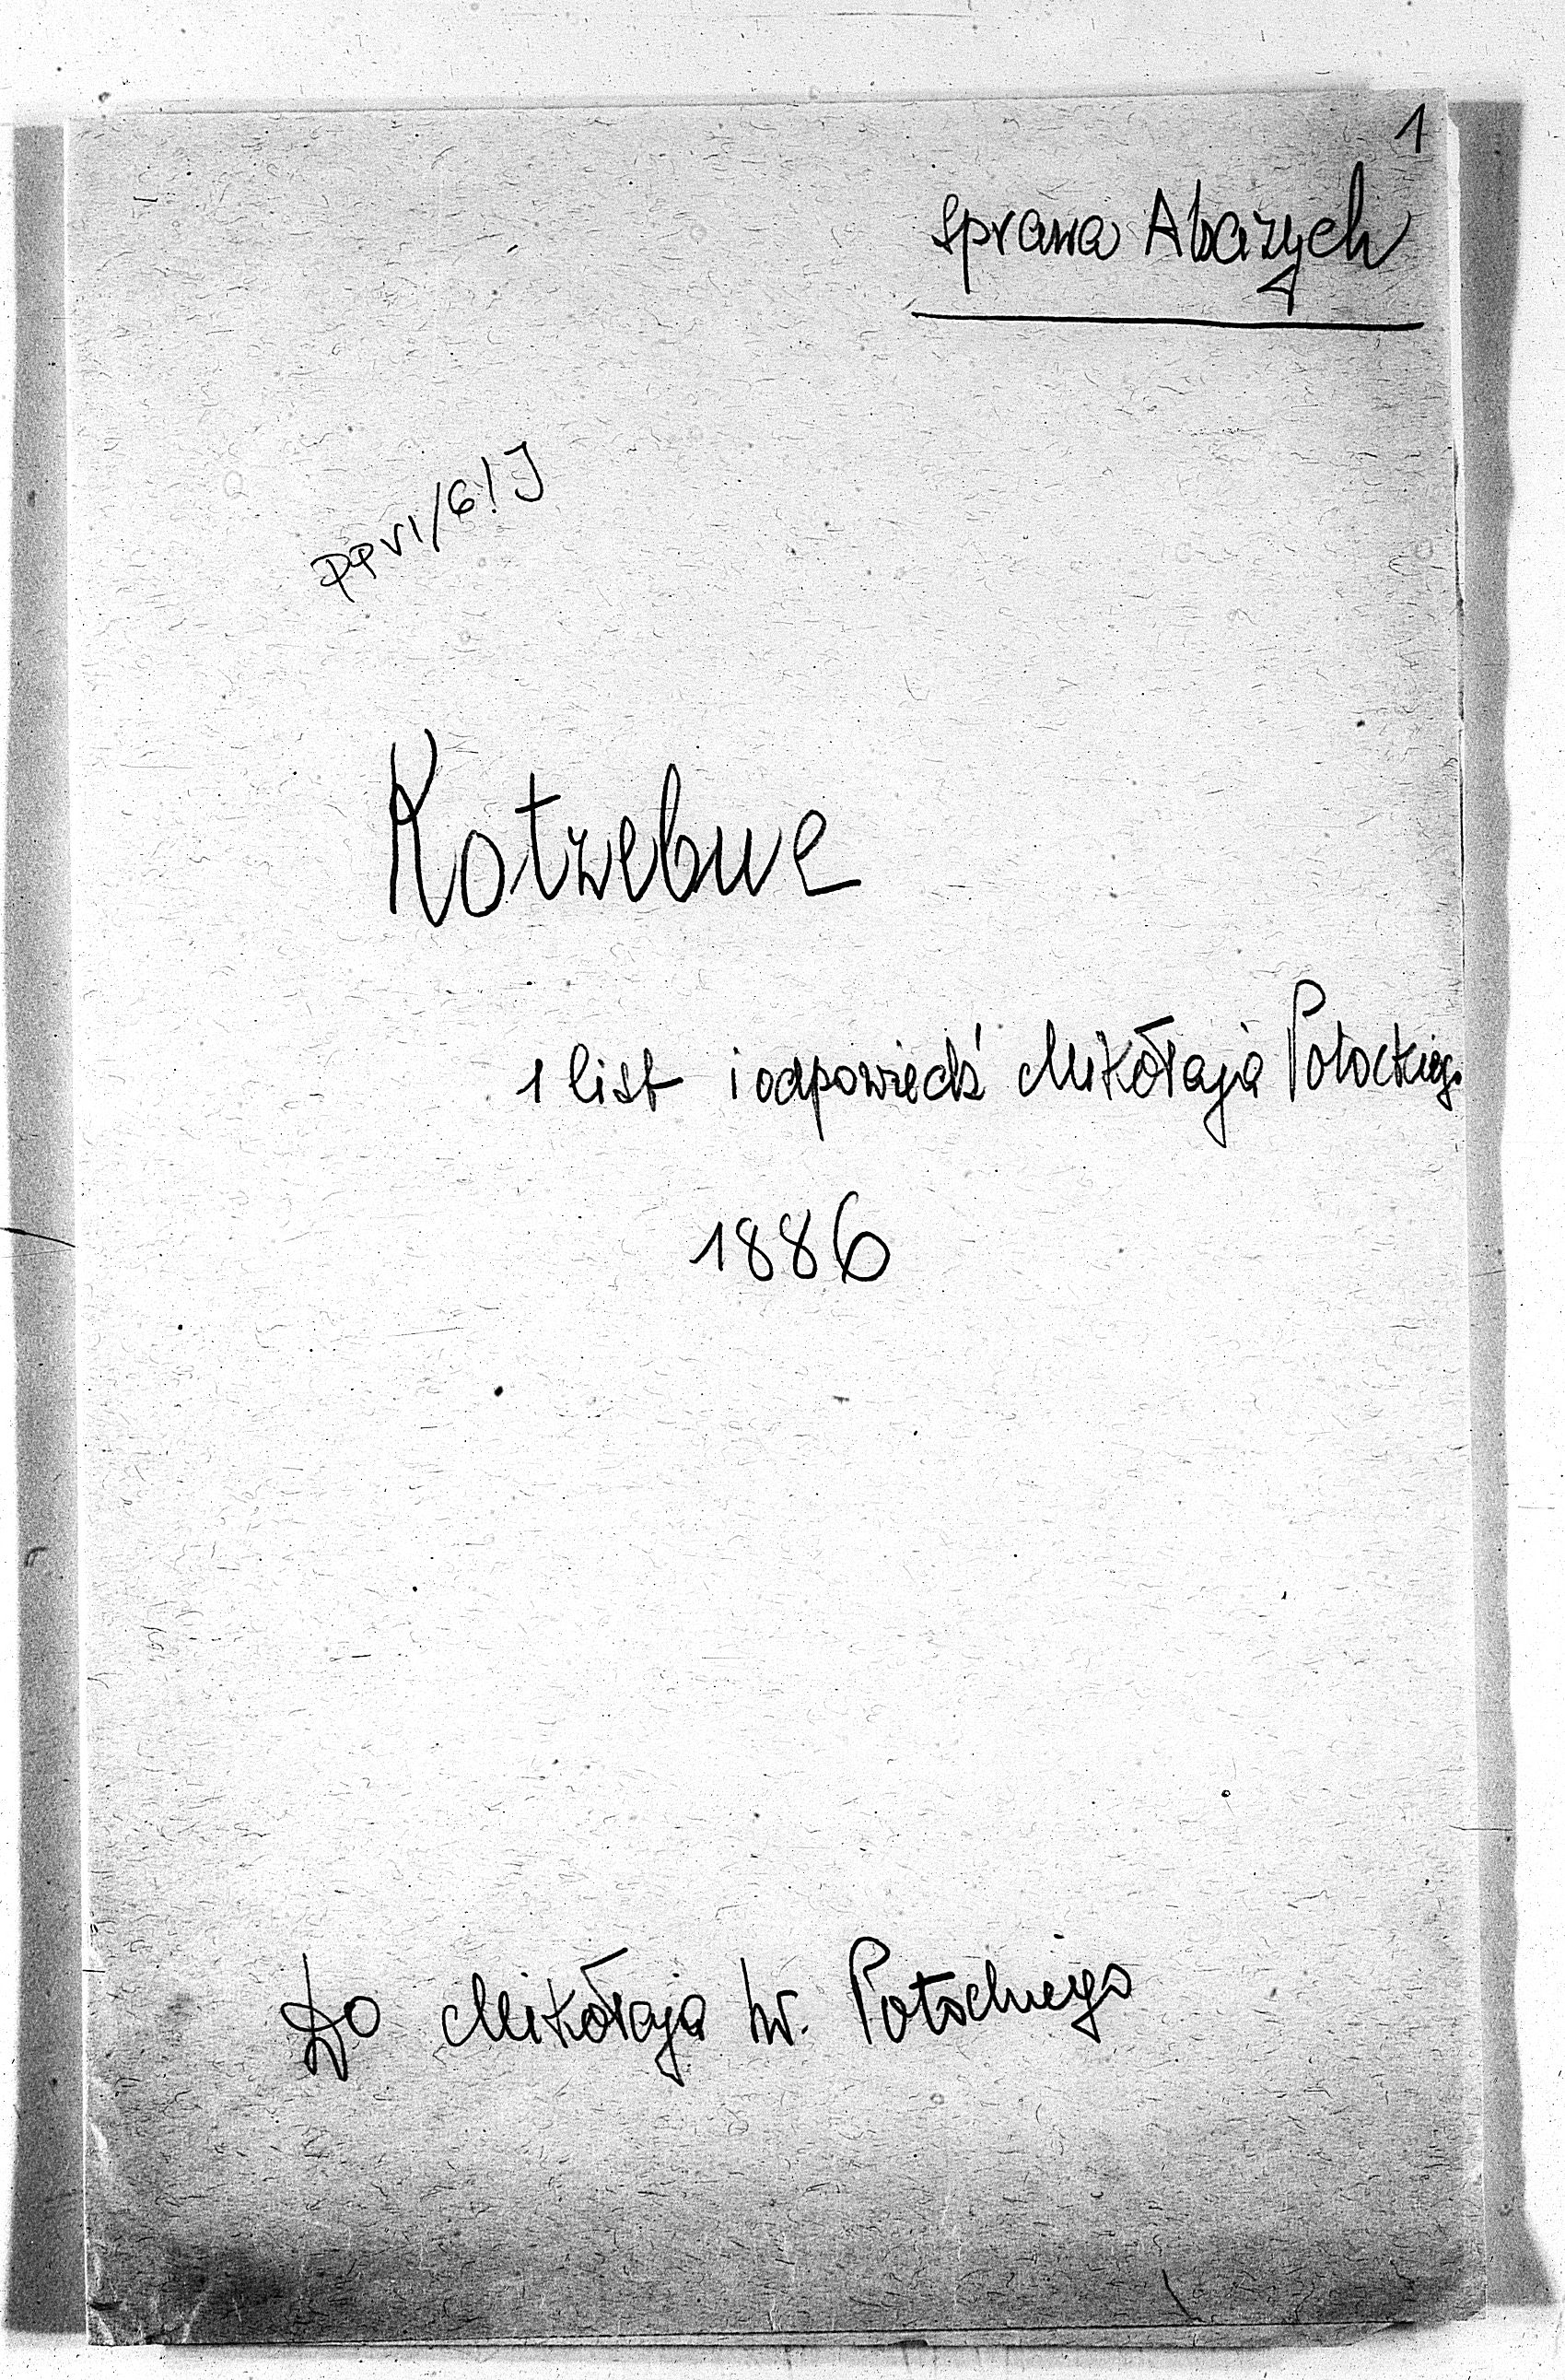 1
sprawa Abazych
PP VI/6/J
Kotzebue
1 list i odpowiedź Mikołaja Potockiego
1886
Do Mikołaja hr. Potockiego